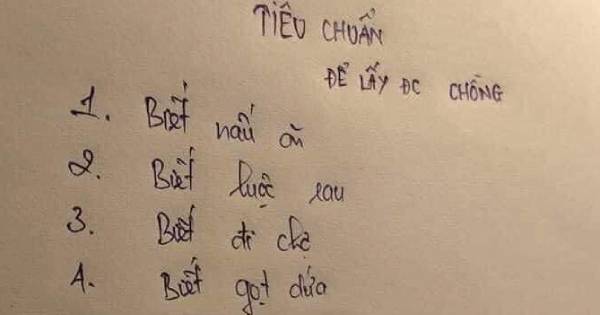 TIÊU CHUẨN
ĐỂ LẤY ĐC CHỒNG
1. Biết nấu ăn
2. Biết luộc rau
3. Biết đi chợ
4. Biết gọt dứa